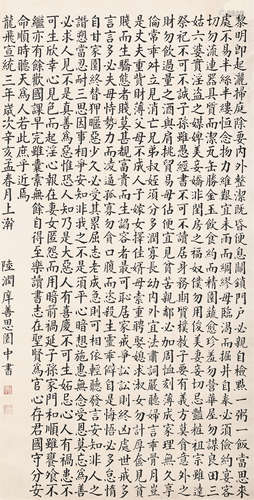 黎明即起灑掃庭除要內外整潔既昏便息關鎖門戶必親自檢點一粥一飯當思來
處不易半絲半縷恒念物力維艱宜未雨而綢繆毋臨渴而掘井自奉必須儉約宴客
切勿流連器具質而潔瓦缶勝金玉飲食約而精園蔬愈珍羞勿營華屋勿謀良田三
姑六婆實淫盜之媒婢美妾嬌非閨房之福奴僕勿用俊美妻妾切忌豔粧祖宗雖遠
祭祀不可不誠子孫雖愚經書不可不讀居身務期質樸教子要有義方勿貪意外之
財勿飲過量之酒與肩挑貿易毋佔便宜見貧苦親鄰必加周恤刻薄成家理無久享
倫常乖舛立見消亡兄弟叔姪須分多潤寡長幼內外宜法肅詞嚴聽婦言乖骨肉豈
是丈夫重貲財薄父母不成人子嫁女擇佳婿毋索重聘娶媳求淑女勿計厚奩見貧
賤而生驕態者賤莫甚見富貴而生諂容者最可恥居家戒爭訟訟則終凶處世戒多
言言多必失毋恃勢力而凌逼孤寡毋貪口腹而恣殺牲禽乖僻自是悔悟必多頹惰
自甘家園終替狎暱惡少久必受其累屈志老成急則可相依輕聽發言安知非人之
譖愬當忍耐三思因事相爭安知非我之不是須平心暗想施惠無念受恩莫忘為善
必求人見不是真善惡惟恐人知乃是大惡人有喜慶不可生妒忌心人有禍患不
可生欣幸心見色而起淫心報在妻女匿怨而用暗箭禍延子孫家門和順雖饔飧不
繼亦有餘歡國課早完雖囊橐無餘自得至樂讀書志在聖賢為官心存君國守分安
命順時聽天為人若此庶乎近焉
龍飛宣統三年歲次辛亥孟春月上澣
陸潤庠善思園中書